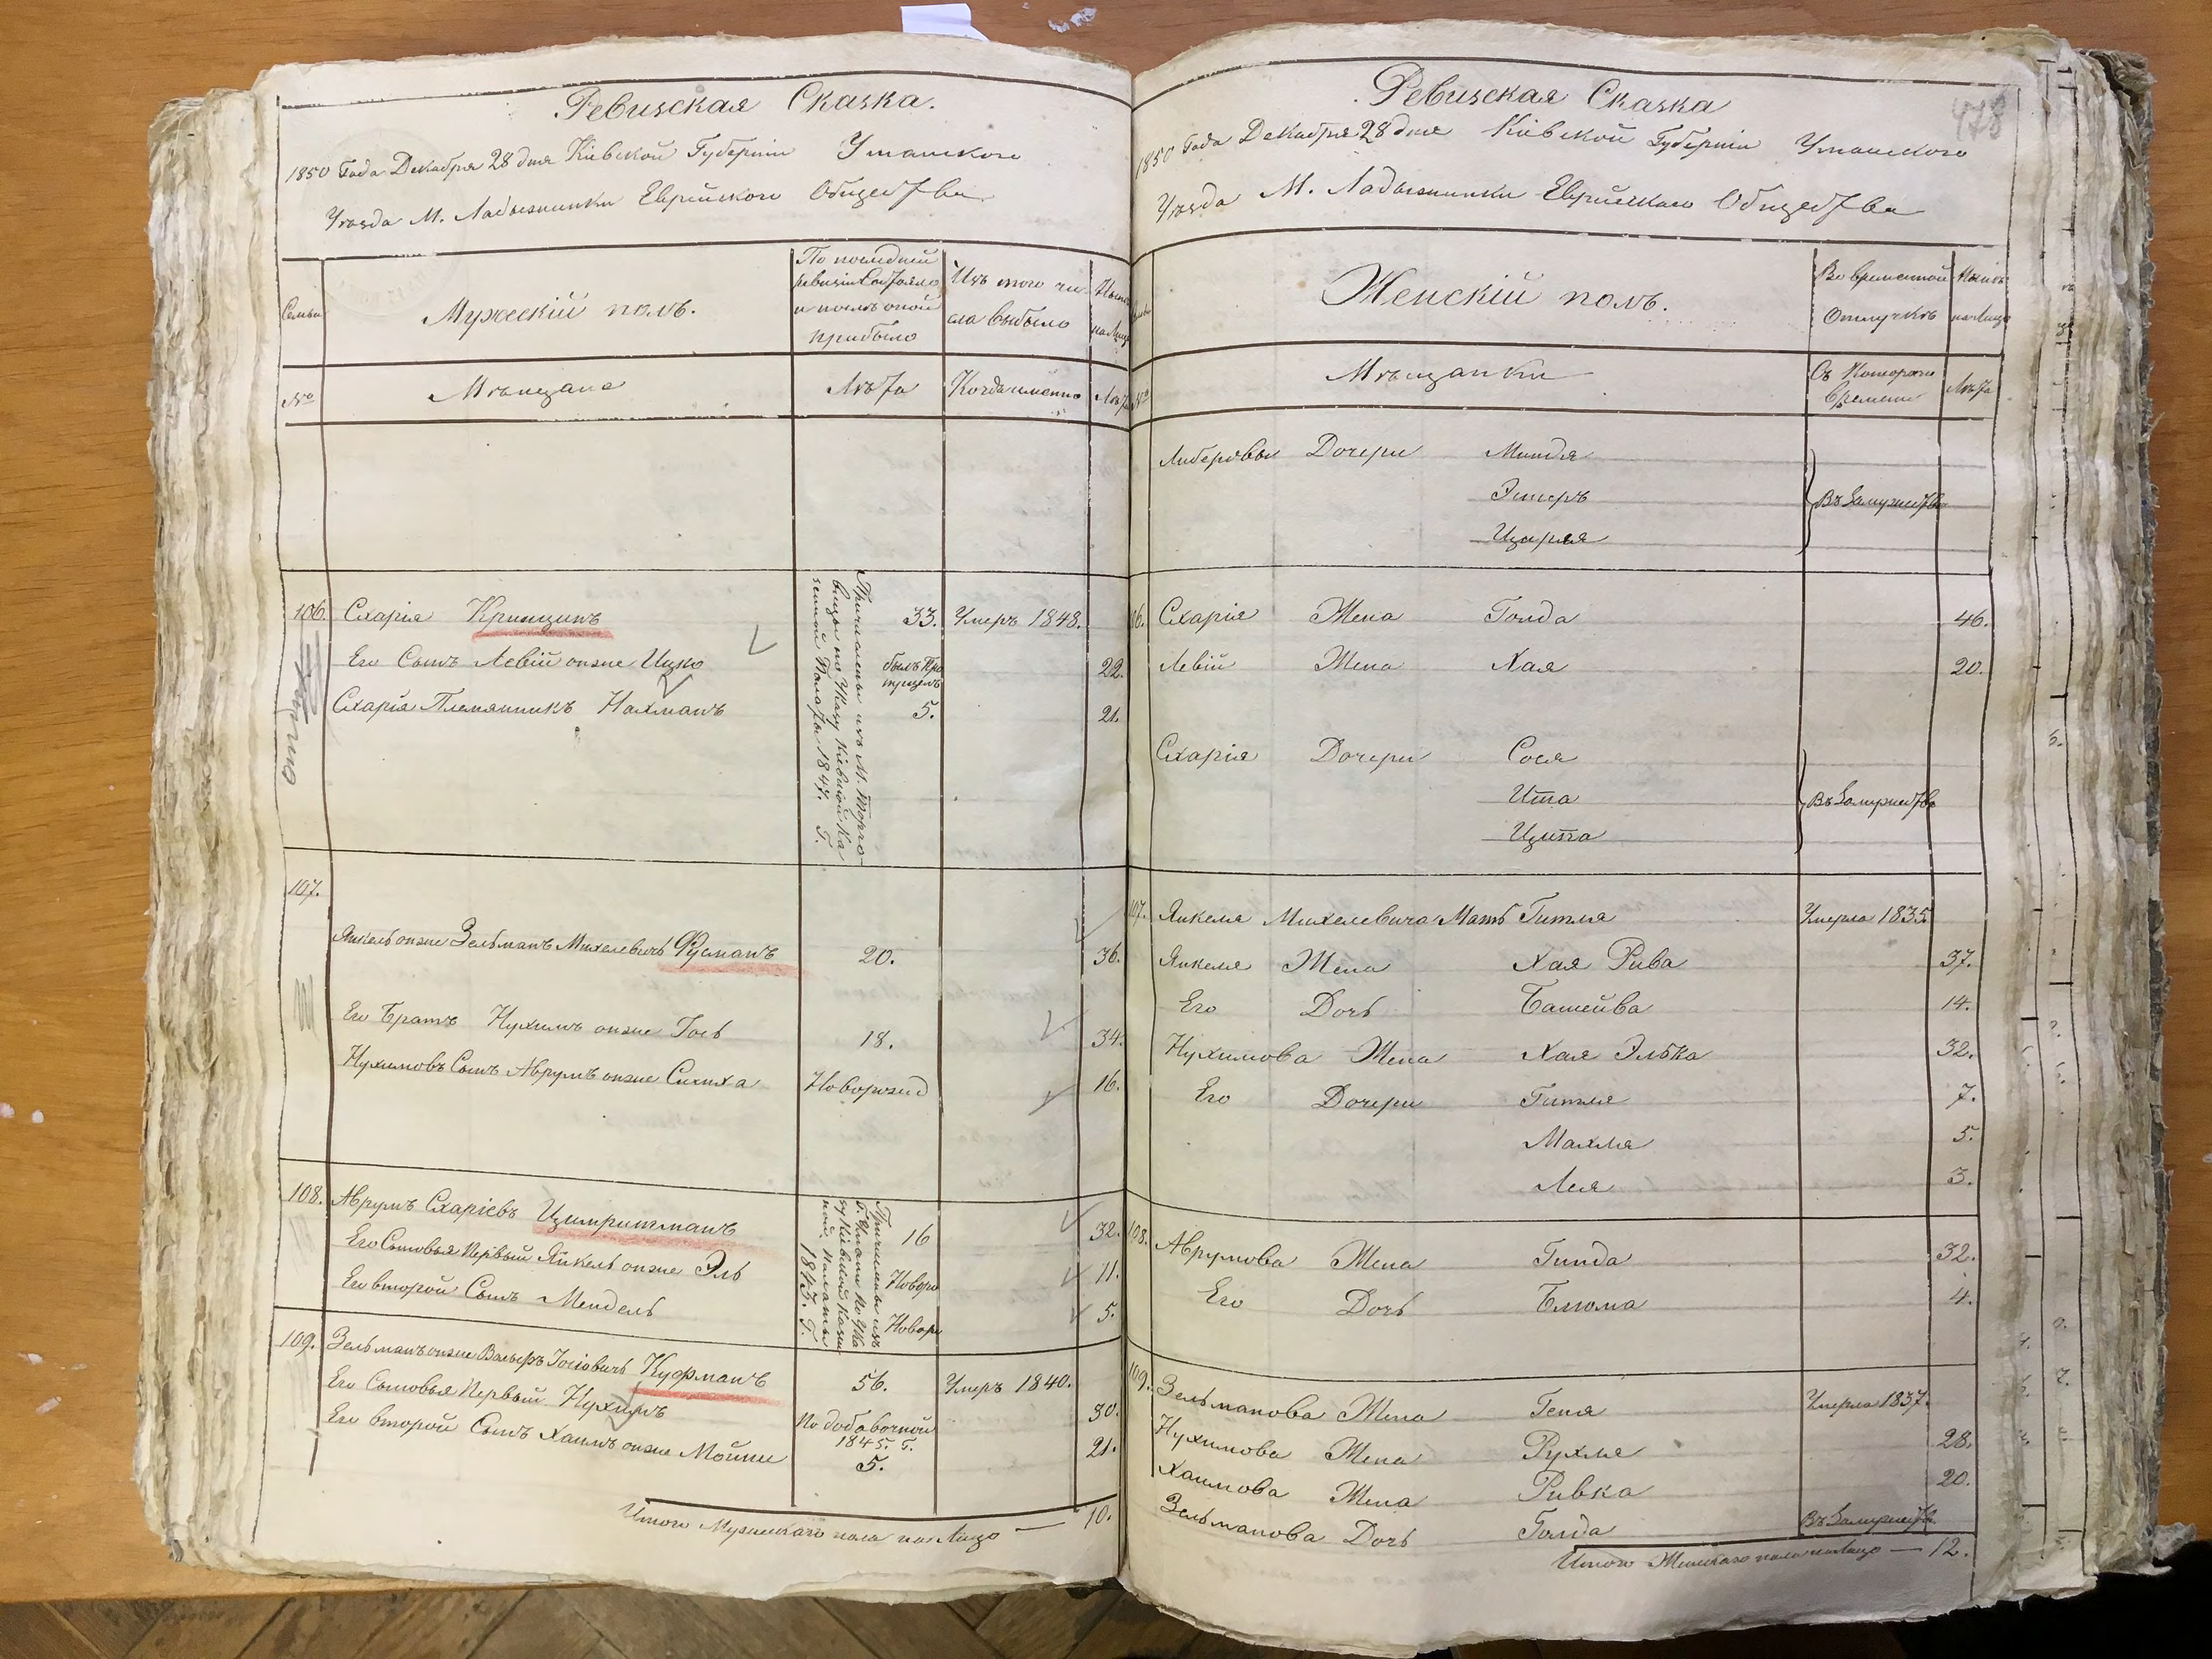 Ревизская Сказка.
1850 Года Декабря 28 дня Кіевской Губерніи Уманского
Уѣзда М. Ладыжинки Еврейского Общества
Семьи
Мужескій полъ.
По последней ревизіи состояло и послѣ оной прибыло
Изъ того числа выбыло
Ныне на Лицо
№
Мѣщане
Лѣта
Когда именно
Лѣта
106. Схарія 33. Умеръ 1848.
Его Сынъ Левій онже Ицко былъ Пропущенъ 22.
Схарія Племянникъ Нахманъ 5. 21.
Причислены изъ М. Торговицы по Указу Кіевской Казенной Палаты 1847. Г.
107.
Янкель онже Зельманъ Михелевичъ Фусманъ 20. 36.
Его Братъ Нухимъ онже Гось 18. 34.
Нухимовъ Сынъ Аврумъ онже Симха Новорожд 16.
108. Аврумъ Схаріевъ 16 32.
Его Сыновья Первый Янкель онже Эль Новоро 11.
Его второй Сынъ Мендель Новоро 5.
Причислены изъ Г. Умани по Указу Кіевской Казенной Палаты 1843. Г.
109. Зельманъ онже Вольфъ Іосіовичъ Куфманъ 56. Умеръ 1840.
Его Сыновья Первый Нухимъ По добавочной 1845. Г. 30.
Его второй Сынъ Хаимъ онже Мойши 5. 21.
Итого Мужескаго пола на Лицо — 10.
Ревизская Сказка
478
1850 Года Декабря 28 дня Кіевской Губерніи Уманского
Уѣзда М. Ладыжинки Еврейскаго Общества
Женскій полъ.
Во временной Отлучкѣ
Нынѣ на Лицо
№
Мѣщанки
Съ Котораго Времени
Лѣта
Либеровы Дочери Миндя
Эстеръ
Въ Замужествѣ
106. Схарія Жена Голда 46.
Левій Жена Хая 20.
Схарія Дочери Сося
Ита
Ципа
Въ Замужествѣ
107. Янкеля Михелевича Мать Гитля Умерла 1835
Янкеля Жена Хая Рива 37.
Его Дочь Башейва 14.
Нухимова Жена Хая Элька 32.
Его Дочери Гитля 7.
Махля 5.
Лея 3.
108. Аврумова Жена Гинда 32.
Его Дочь Блюма 4.
109. Зельманова Жена Геня Умерла 1837.
Нухимова Жена Рухля 28.
Хаимова Жена Ривка 20.
Зельманова Дочь Голда Въ Замужествѣ
Итого Женскаго пола на Лицо — 12.